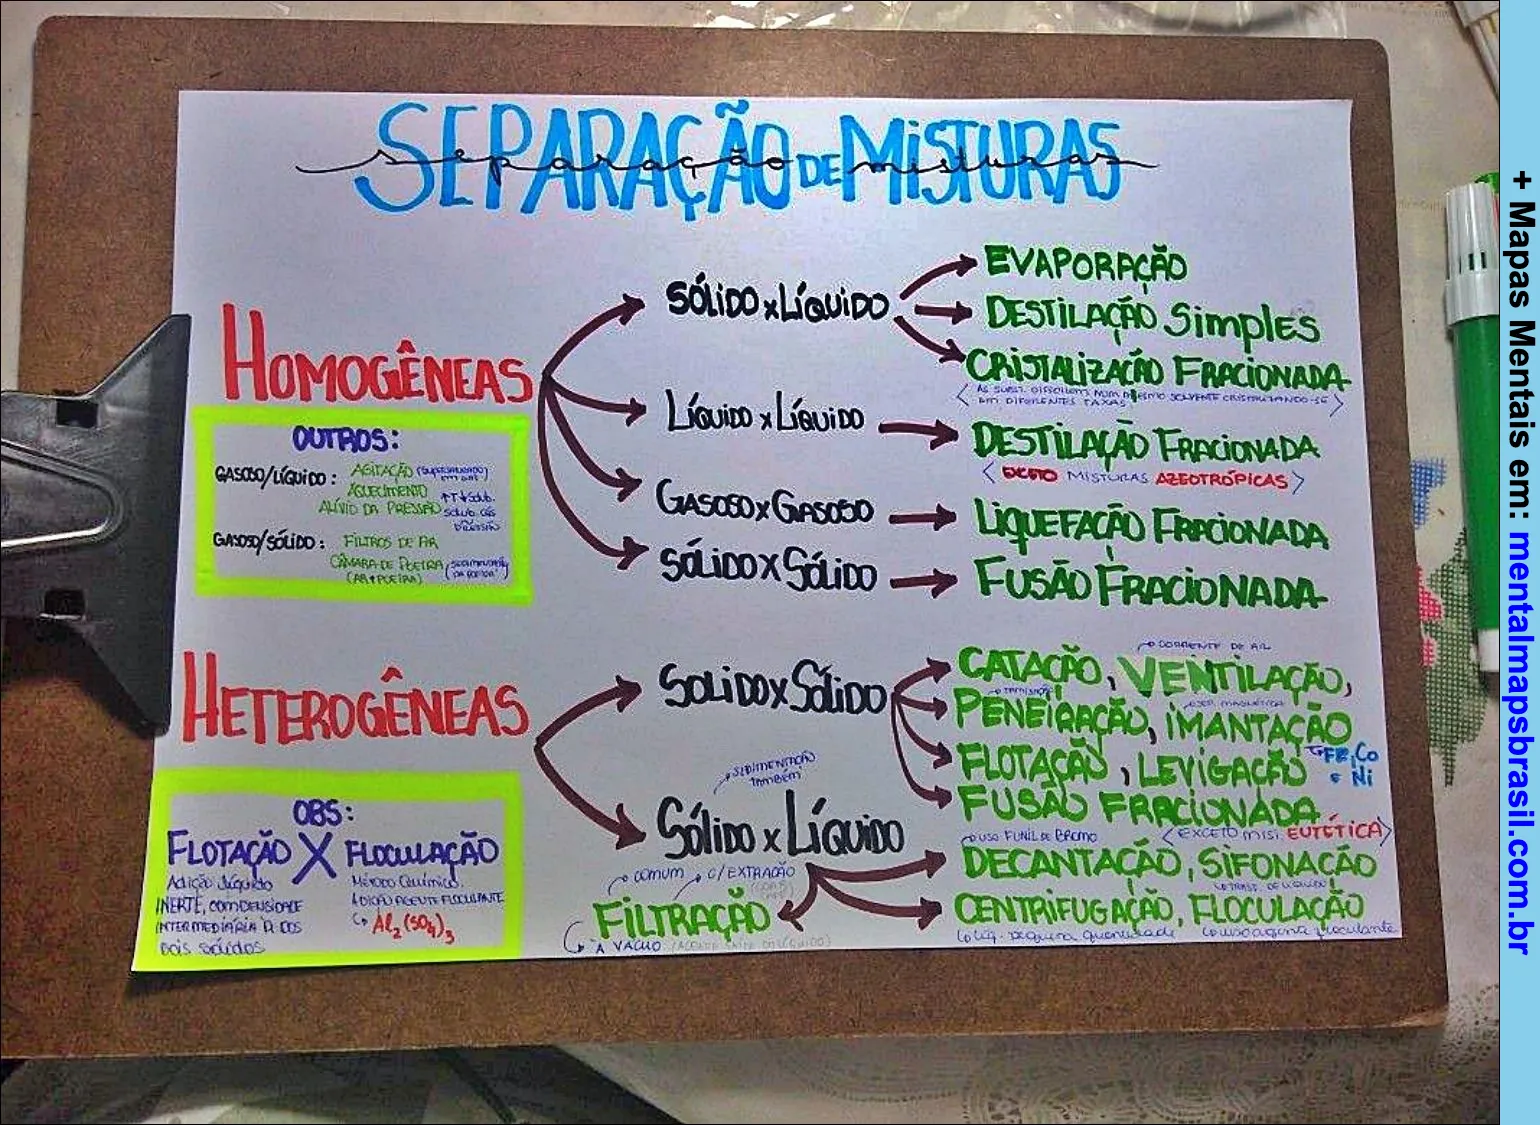 SEPARAÇÃO DE MISTURAS
separação misturas
HOMOGÊNEAS
SÓLIDO x LÍQUIDO
EVAPORAÇÃO
DESTILAÇÃO SIMPLES
CRISTALIZAÇÃO FRACIONADA
AS SUBST. DISSOLVEM NUM MESMO SOLVENTE CRISTALIZANDO-SE
EM DIFERENTES TAXAS
LÍQUIDO x LÍQUIDO
DESTILAÇÃO FRACIONADA
< EXCETO MISTURAS AZEOTRÓPICAS >
GASOSO x GASOSO
LIQUEFAÇÃO FRACIONADA
SÓLIDO x SÓLIDO
FUSÃO FRACIONADA
OUTROS:
GASOSO/LÍQUIDO: AGITAÇÃO
AQUECIMENTO ↑T↓SOLUB.
ALÍVIO DA PRESSÃO SOLUB. GÁS
PRESSÃO
GASOSO/SÓLIDO: FILTROS DE AR
CÂMARA DE POEIRA (SEDIMENTAÇÃO
(AR+POEIRA) DA POEIRA)
HETEROGÊNEAS
SOLIDO x SÓLIDO
CORRENTE DE AR
CATAÇÃO, VENTILAÇÃO,
TAMISAÇÃO SEP. MAGNÉTICA
PENEIRAÇÃO, IMANTAÇÃO
FE, Co
e Ni
FLOTAÇÃO, LEVIGAÇÃO
FUSÃO FRACIONADA
<EXCETO MIST. EUTÉTICA>
SEDIMENTAÇÃO
TAMBÉM
SÓLIDO x LÍQUIDO
USO FUNIL DE BROMO
DECANTAÇÃO, SIFONAÇÃO
CENTRIFUGAÇÃO, FLOCULAÇÃO
LÍQ. PEQUENA QUANTIDADE USO AGENTE FLOCULANTE
COMUM C/ EXTRAÇÃO
FILTRAÇÃO
A VÁCUO
OBS:
FLOTAÇÃO X FLOCULAÇÃO
ADIÇÃO LÍQUIDO
INERTE, COM DENSIDADE
INTERMEDIÁRIA À DOS
DOIS SÓLIDOS
MÉTODO QUÍMICO.
ADIÇÃO AGENTE FLOCULANTE
Al₂(SO₄)₃
+ Mapas Mentais em: mentalmapsbrasil.com.br